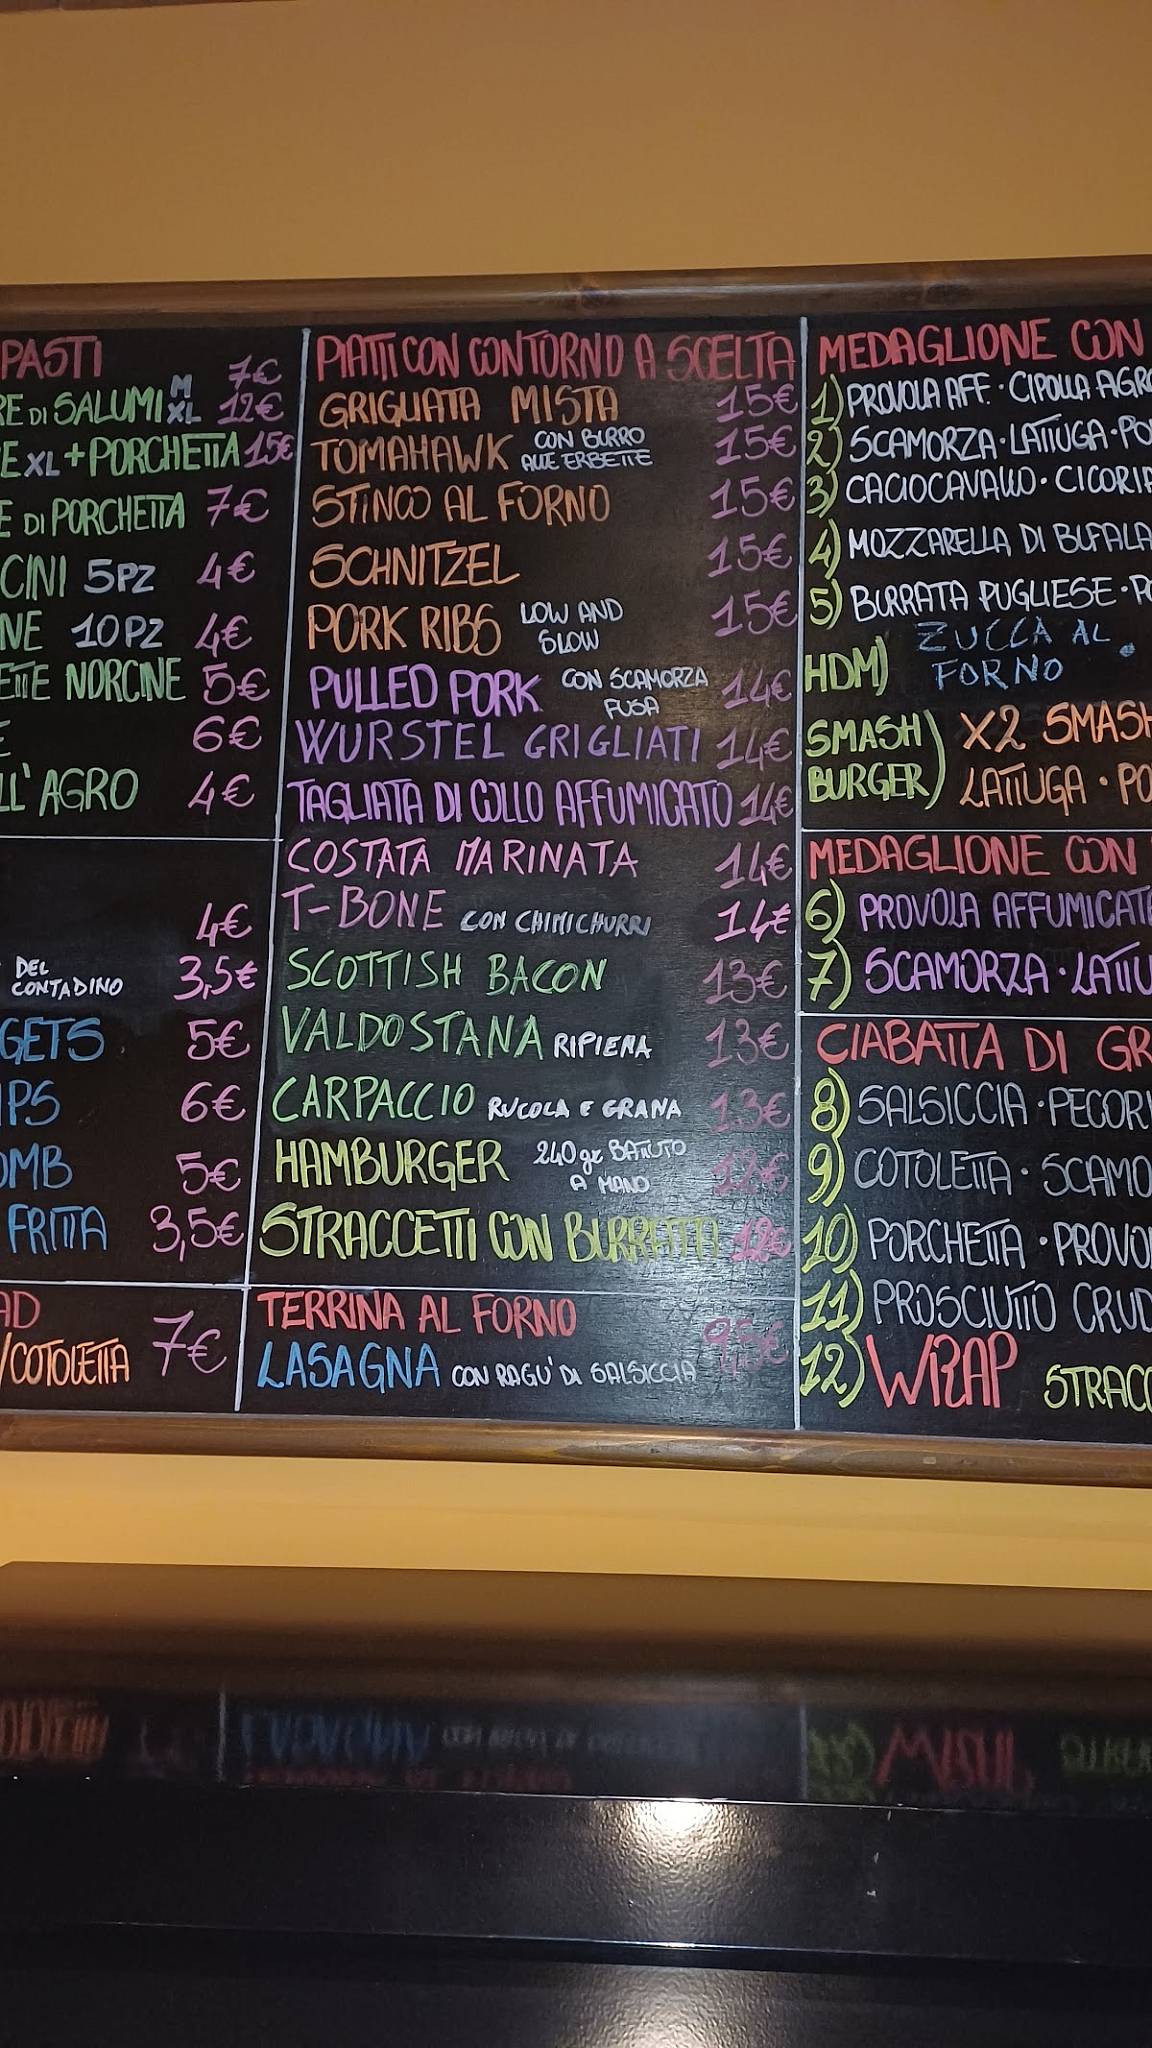 PASTI
7€
RE DI SALUMI M
XL 12€
E XL + PORCHETTA 15€
E DI PORCHETTA 7€
CINI 5PZ 4€
NE 10PZ 4€
ETTE NORCINE 5€
E 6€
LL'AGRO 4€
4€
DEL
CONTADINO 3,5€
GETS 5€
IPS 6€
OMB 5€
FRITTA 3,5€
AD
/COTOLETTA 7€
PIATTI CON CONTORNO A SCELTA
GRIGLIATA MISTA 15€
TOMAHAWK CON BURRO
ALLE ERBETTE 15€
STINCO AL FORNO 15€
SCHNITZEL 15€
PORK RIBS LOW AND
SLOW 15€
PULLED PORK CON SCAMORZA
FUSA 14€
WURSTEL GRIGLIATI 14€
TAGLIATA DI COLLO AFFUMICATO 14€
COSTATA MARINATA 14€
T-BONE CON CHIMICHURRI 14€
SCOTTISH BACON 13€
VALDOSTANA RIPIENA 13€
CARPACCIO RUCOLA E GRANA 13€
HAMBURGER 240gr BATTUTO
A MANO 12€
STRACCETTI CON BURRATA 12€
TERRINA AL FORNO
LASAGNA CON RAGU' DI SALSICCIA
MEDAGLIONE CON
1) PROVOLA AFF. · CIPOLLA AGRO
2) SCAMORZA · LATTUGA · PO
3) CACIOCAVALLO · CICORIA
4) MOZZARELLA DI BUFALA
5) BURRATA PUGLIESE · PO
HDM) ZUCCA AL
FORNO ·
SMASH
BURGER) X2 SMASH
LATTUGA · PO
MEDAGLIONE CON
6) PROVOLA AFFUMICATA
7) SCAMORZA · LATTU
CIABATTA DI GR
8) SALSICCIA · PECORI
9) COTOLETTA · SCAMO
10) PORCHETTA · PROVO
11) PROSCIUTTO CRUD
12) WRAP STRACC